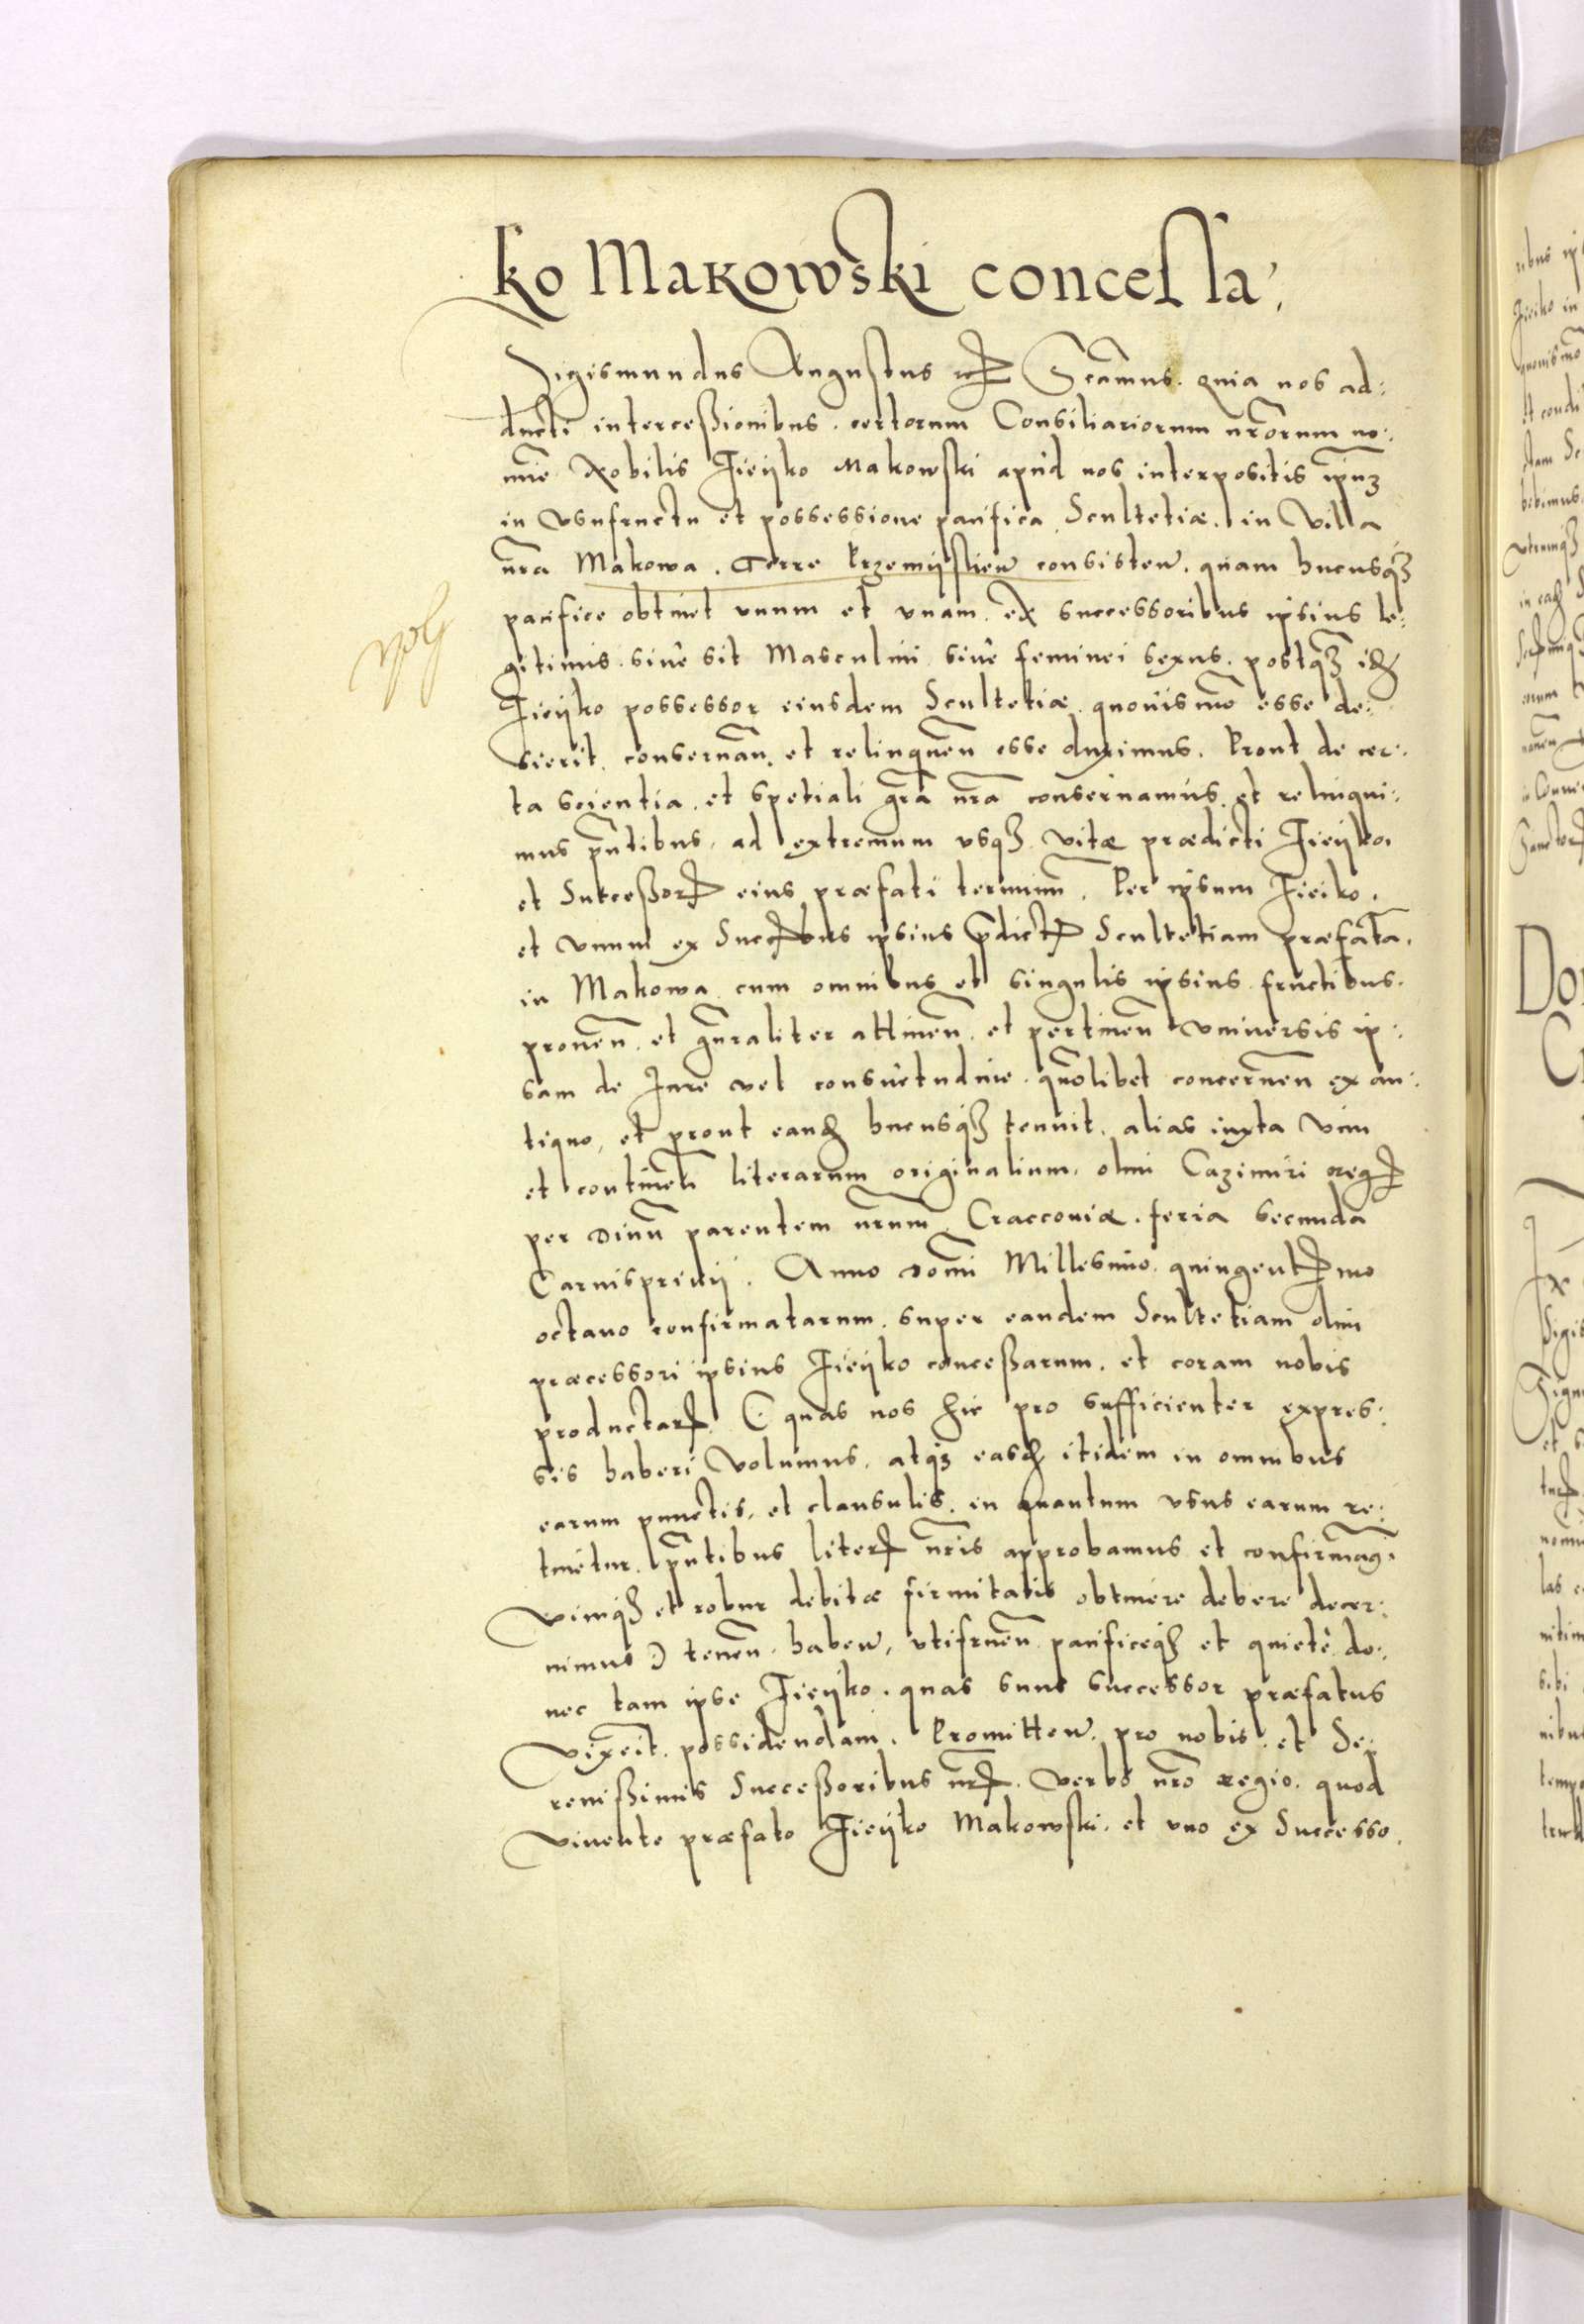 ko Makowski concessa.
Sigismundus Augustus etc. Sēamus. quia nos ad:
ducti intercessionibus. certorum Consiliariorum nr̄orum no:
mīe Nobilis Fieyko Makowski apud nos interpositis ip̄uꝫ
in vsufructu et possessione pacifica Scultetiæ. in Villa
nr̄a Makowa. Terre Przemyslien consisten. quam hucusqꝫ
pacifice obtinet vnum et vnam. ex successoribus ipsius le:
gitimis. sive sit Masculini sive feminei sexus. postqꝫ idꝫ
Fieyko possessor eiusdem Scultetiæ. quovismō esse de:
sierit. conservan̄. et relinquen̄ esse duximus. Prout de cer:
ta scientia. et spetiali gr̄a nr̄a conservamus. et relinqui:
mus pn̄tibus. ad extremum vsqꝫ vitæ prædicti Fieyko.
et Successorꝝ eius præfati terminū. Per ipsum Fieiko.
et vnum ex Succꝝbus ipsius p̄dictꝝ Scultetiam præfata̅.
in Makowa cum omnibus et singulis ipsius fructibus.
proven̄. et gn̄raliter attinen̄. et pertinen̄ vniversis ip:
sam de Iure vel consvetudine. quōlibet concernen̄ ex an:
tiquo, et prout eandꝫ hucusqꝫ tenuit. alias iuxta vim
et continen̄ literarum originalium. olim Cazimiri regꝭ
per Divū parentem nr̄um. Cracoviæ. feria secunda
Carnisprivij. Anno Domī Millesimo. quingentꝭmo
octavo confirmatarum. super eandem Scultetiam olim
præcessori ipsius Fieyko concessarum. et coram nobis
productarꝝ. (: quas nos hic pro sufficienter expres:
sis haberi volumus. atqꝫ easdꝫ itidem in omnibus
earum punctis, et clausulis. in quantum vsus earum re:
tinetur. pn̄tibus literꝭ nr̄is approbamus et confirmamꝰ.
vimqꝫ et robur debitæ firmitatis obtinere debere decer:
nimus :) tenen̄. haben. vtifruen̄ pacificeqꝫ et quiete. do:
nec tam ipse Fieyko. quas suus successor præfatus
vixerit. possidendam. Promitten. pro nobis. et Se:
renissimis Successoribus nr̄ꝭ. verbo nr̄o regio. quod
vivente præfato Fieyko Makowski. et vno ex Successo.